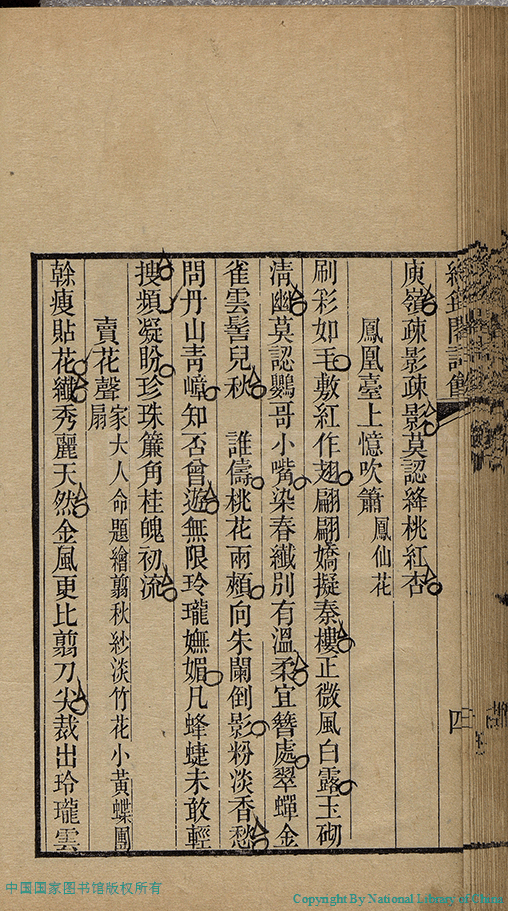 庾嶺疎影疎影莫認絳桃紅杏
鳳凰臺上憶吹簫 鳳仙花
刷彩如毛敷紅作翅翩翩嬌擬秦樓正微風白露玉砌
清幽莫認鸚哥小嘴染春纖別有溫柔宜簪處翠蟬金
雀雲髻兒秋 誰儔桃花兩頰向朱闌倒影粉淡香愁
問丹山靑嶂知否曾遊無限玲瓏嫵媚凡蜂蜨未敢輕
搜頻凝盼珍珠簾角桂魄初流
賣花聲 家大人命題繪翦秋紗淡竹花小黃蝶團扇
榦痩貼花纖秀麗天然金風更比翦刀尖裁出玲瓏雲
四
中国国家图书馆版权所有
Copyright By National Library of China